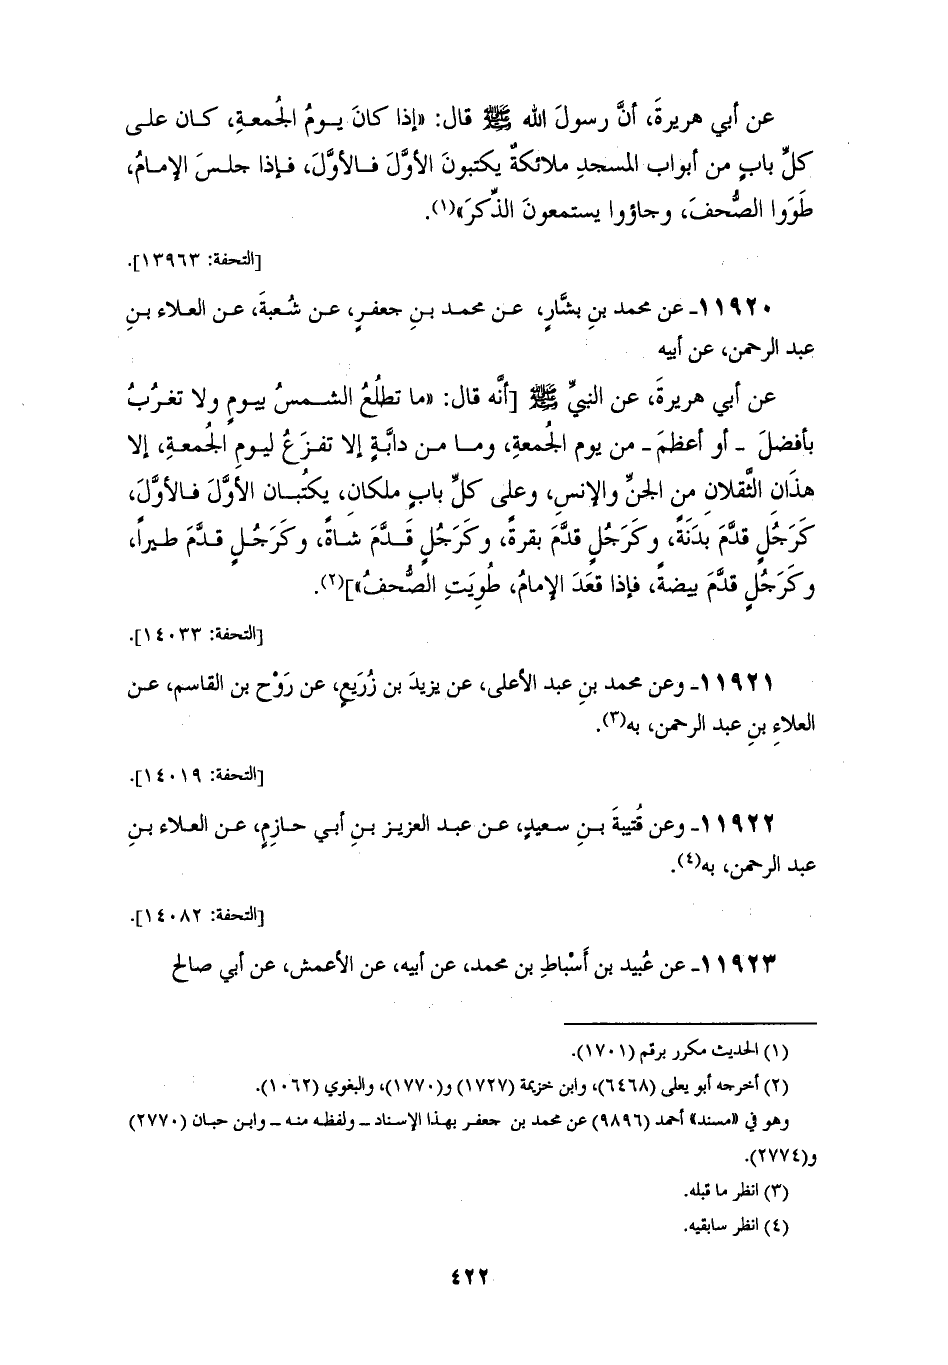 عن أبي هريرةَ، أنَّ رسولَ الله ﷺ قال: «إذا كانَ يومُ الجُمعةِ، كان على
كلِّ بابٍ من أبواب المسجدِ ملائكةٌ يكتبونَ الأوَّلَ فالأوَّلَ، فإذا جلسَ الإمامُ،
طَوَوا الصُّحفَ، وجاؤوا يستمعونَ الذِّكرَ»(١).
[التحفة: ١٣٩٦٣].
١١٩٢٠ـ عن محمد بنِ بشَّارٍ، عن محمد بنِ جعفرٍ، عن شُعبةَ، عن العلاء بنِ
عبد الرحمن، عن أبيه
عن أبي هريرةَ، عن النبيِّ ﷺ [أنَّه قال: «ما تطلُعُ الشمسُ بيومٍ ولا تغرُبُ
بأفضلَ ـ أو أعظمَ ـ من يوم الجُمعةِ، وما من دابَّةٍ إلا تفزَعُ ليومِ الجُمعةِ، إلا
هذَان الثَّقلانِ من الجنِّ والإنسِ، وعلى كلِّ بابٍ ملكانِ، يكتُبان الأوَّلَ فالأوَّلَ،
كَرَجُلٍ قدَّمَ بدَنَةً، وكَرَجُلٍ قدَّمَ بقرةً، وكَرَجُلٍ قَدَّمَ شاةً، وكَرَجُلٍ قدَّمَ طيراً،
وكَرَجُلٍ قدَّمَ بيضةً، فإذا قعَدَ الإمامُ، طُوِيَتِ الصُّحفُ»](٢).
[التحفة: ١٤٠٣٣].
١١٩٢١ـ وعن محمد بنِ عبد الأعلى، عن يزيدَ بن زُرَيعٍ، عن رَوْحِ بن القاسم، عن
العلاءِ بنِ عبد الرحمن، به(٣).
[التحفة: ١٤٠١٩].
١١٩٢٢ـ وعن قُتيبةَ بنِ سعيدٍ، عن عبد العزيز بنِ أبي حازِمٍ، عن العلاء بنِ
عبد الرحمن، به(٤).
[التحفة: ١٤٠٨٢].
١١٩٢٣ـ عن عُبيد بن أَسْباطِ بن محمد، عن أبيه، عن الأعمش، عن أبي صالح
(١) الحديث مكرر برقم (١٧٠١).
(٢) أخرجه أبو يعلى (٦٤٦٨)، وابن خزيمة (١٧٢٧) و(١٧٧٠)، والبغوي (١٠٦٢).
وهو في «مسند» أحمد (٩٨٩٦) عن محمد بن جعفر بهذا الإسناد ـ ولفظه منه ـ وابن حبان (٢٧٧٠)
و(٢٧٧٤).
(٣) انظر ما قبله.
(٤) انظر سابقيه.
٤٢٢